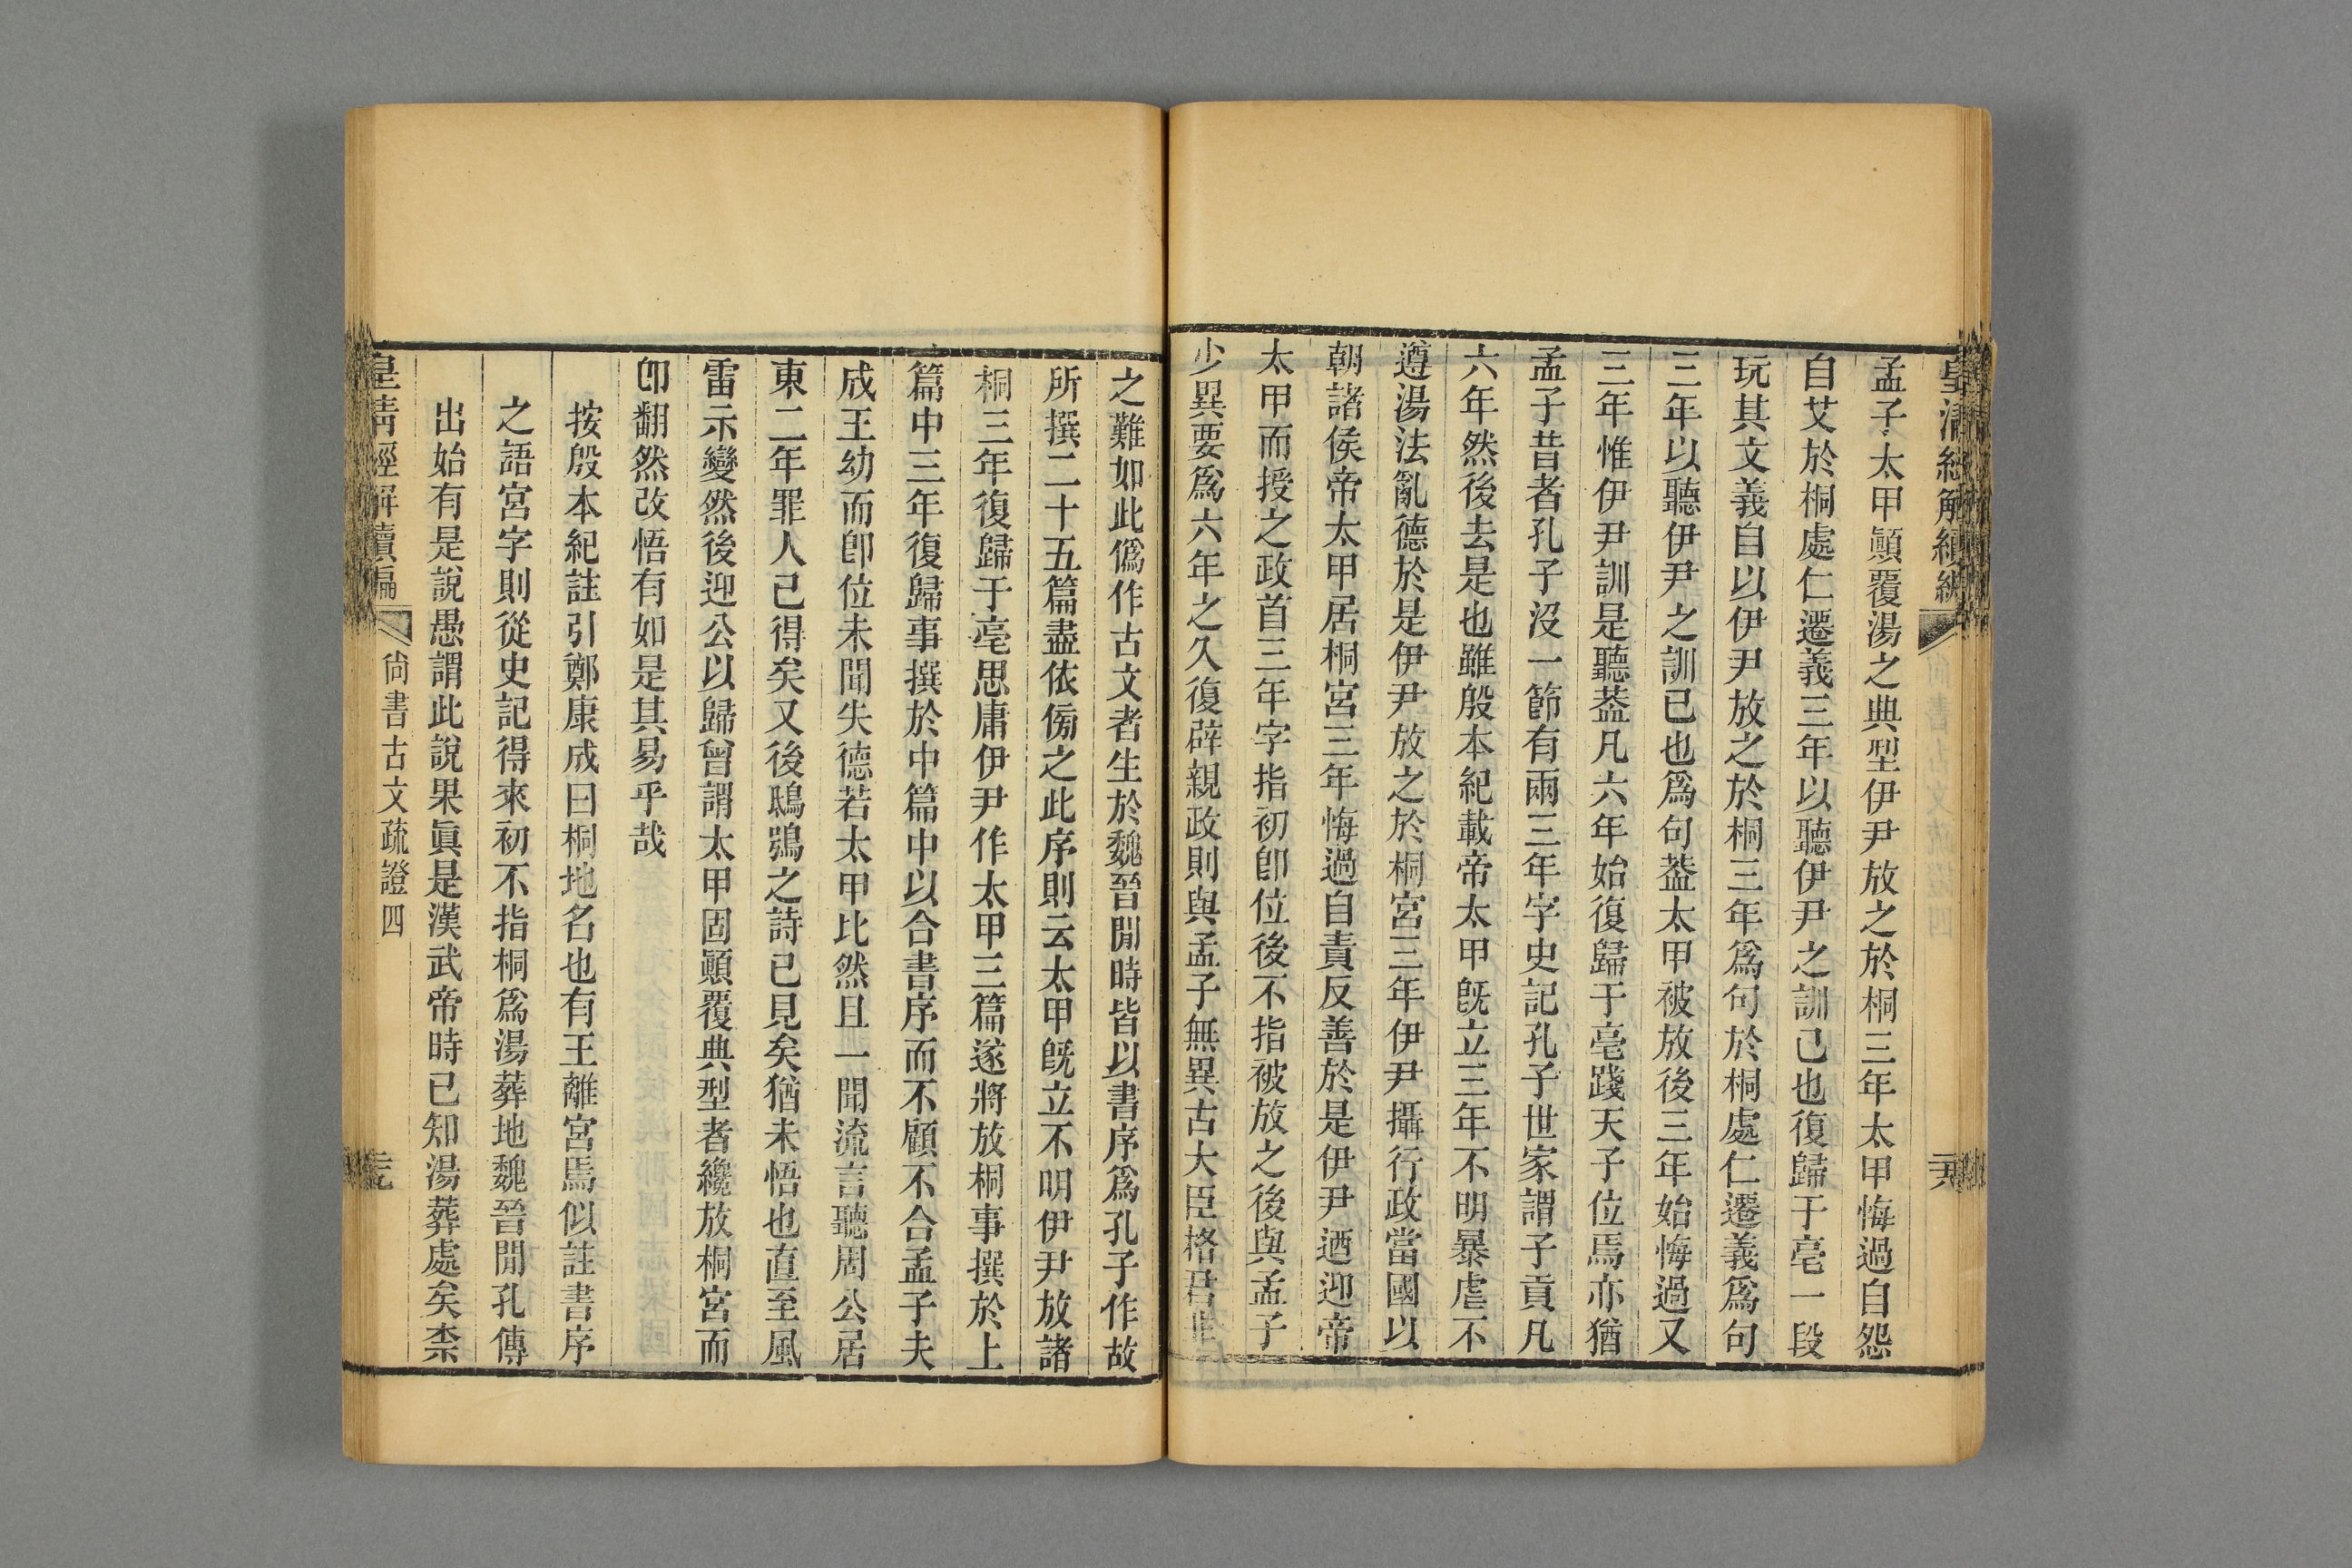 皇清經解續編
孟子太甲顚覆湯之典型伊尹放之於桐三年太甲悔過自怨
自艾於桐處仁遷義三年以聽伊尹之訓己也復歸于亳一段
玩其文義自以伊尹放之於桐三年爲句於桐處仁遷義爲句
三年以聽伊尹之訓已也爲句葢太甲被放後三年始悔過又
三年惟伊尹訓是聽葢凡六年始復歸于亳踐天子位焉亦猶
孟子昔者孔子沒一節有兩三年字史記孔子世家謂子貢凡
六年然後去是也雖殷本紀載帝太甲旣立三年不明暴虐不
遵湯法亂德於是伊尹放之於桐宮三年伊尹攝行政當國以
朝諸侯帝太甲居桐宮三年悔過自責反善於是伊尹迺迎帝
太甲而授之政首三年字指初卽位後不指被放之後與孟子
少異要爲六年之久復辟親政則與孟子無異古大臣格君非
之難如此僞作古文者生於魏晉閒時皆以書序爲孔子作故
所撰二十五篇盡依傍之此序則云太甲旣立不明伊尹放諸
桐三年復歸于亳思庸伊尹作太甲三篇遂將放桐事撰於上
篇中三年復歸事撰於中篇中以合書序而不顧不合孟子夫
成王幼而卽位未聞失德若太甲比然且一聞流言聽周公居
東二年罪人已得矣又後鴟鴞之詩已見矣猶未悟也直至風
雷示變然後迎公以歸曾謂太甲固顚覆典型者纔放桐宮而
卽翻然改悟有如是其易乎哉
按殷本紀註引鄭康成曰桐地名也有王離宮焉似註書序
之語宮字則從史記得來初不指桐爲湯葬地魏晉閒孔傳
出始有是說愚謂此說果眞是漢武帝時已知湯葬處矣柰
皇清經解續編
尙書古文疏證四